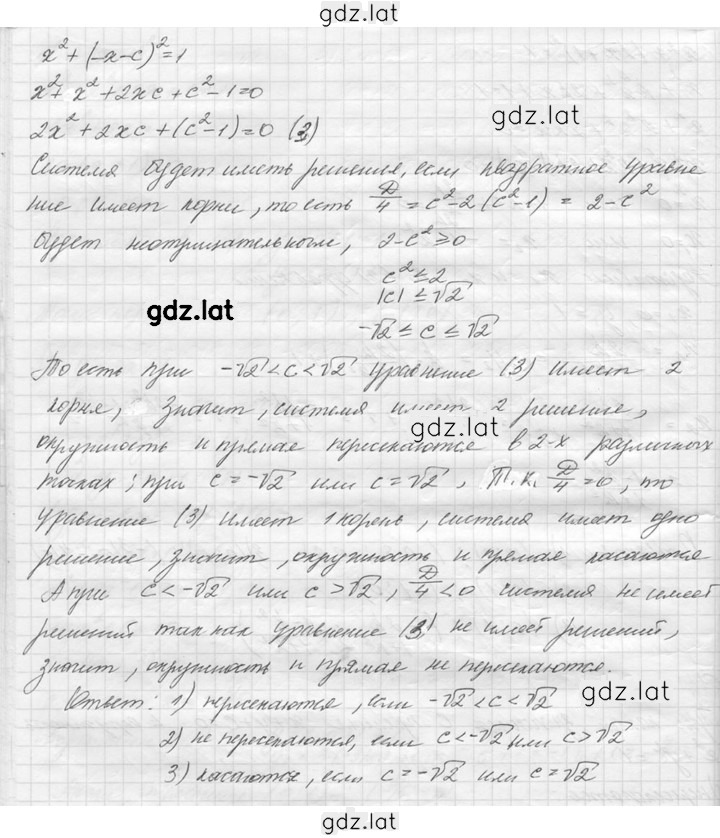 gdz.lat
x² + (-x-c)² = 1
x² + x² + 2xc + c² - 1 = 0
2x² + 2xc + (c² - 1) = 0 (3)
Система будет иметь решения, если квадратное уравне
ние имеет корни, то есть D/4 = c² - 2(c² - 1) = 2 - c²
будет неотрицательным, 2 - c² ≥ 0
c² ≤ 2
|c| ≤ √2
gdz.lat
gdz.lat
-√2 ≤ c ≤ √2
То есть при -√2 < c < √2 уравнение (3) имеет 2
корня, значит, система имеет 2 решение,
gdz.lat
окружность и прямая пересекаются в 2-х различных
точках; при c = -√2 или c = √2, т.к. D/4 = 0, то
уравнение (3) имеет 1 корень, система имеет одно
решение, значит, окружность и прямая касаются
А при c < -√2 или c > √2, D/4 < 0 система не имеет
решений так как уравнение (3) не имеет решений,
значит, окружность и прямая не пересекаются.
gdz.lat
Ответ: 1) пересекаются, если -√2 < c < √2
2) не пересекаются, если c < -√2 или c > √2
3) касаются, если c = -√2 или c = √2
gdz.lat